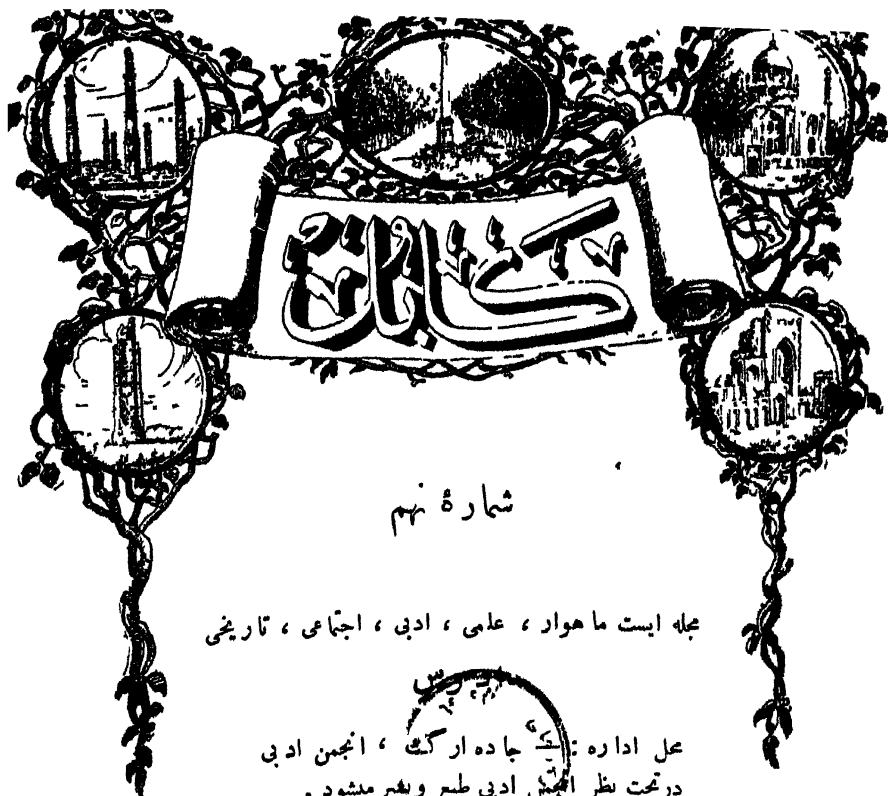 کابل
شمارۀ نهم
مجله ایست ماهوار ، علمی ، ادبی ، اجتماعی ، تاریخی
محل اداره : جاده ارگ ، انجمن ادبی
در تحت نظر انجمن ادبی طبع و نشر میشود .